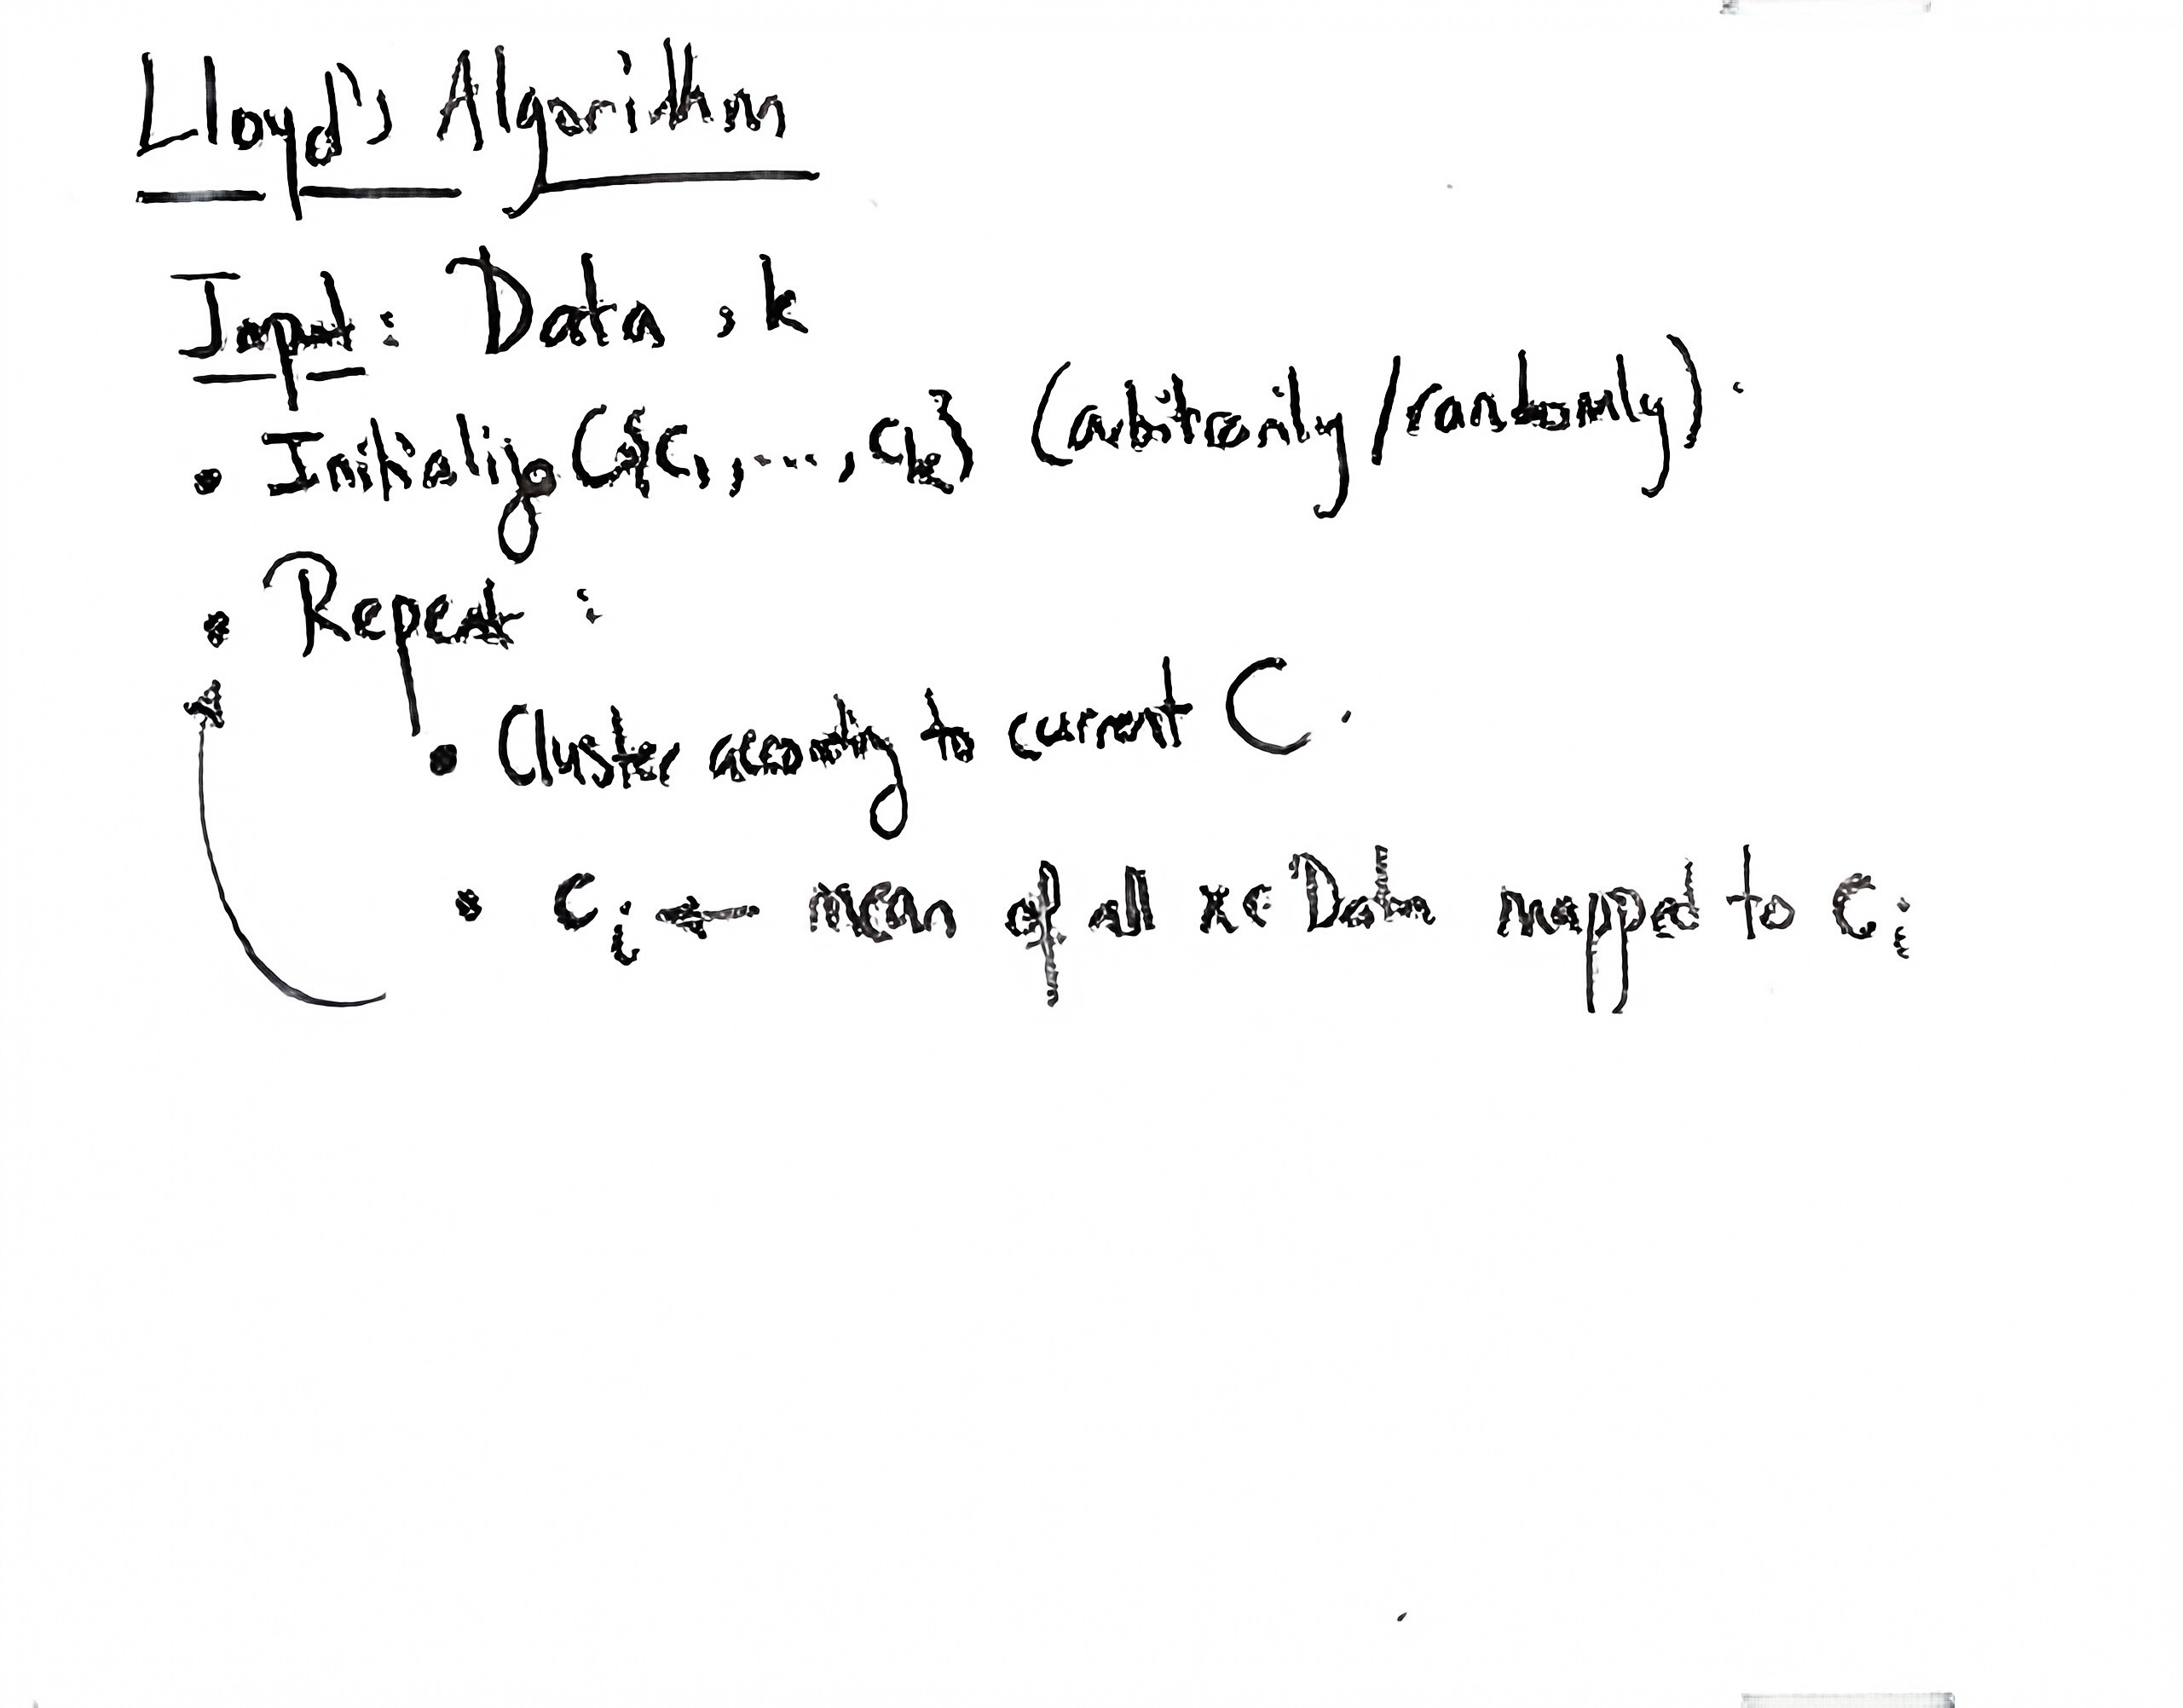 Lloyd's Algorithm
Input: Data, k
• Initialize C={c₁,...., cₖ} (arbitrarily/randomly).
• Repeat:
• Cluster according to current C.
• cᵢ ← mean of all x ∈ Data mapped to cᵢ